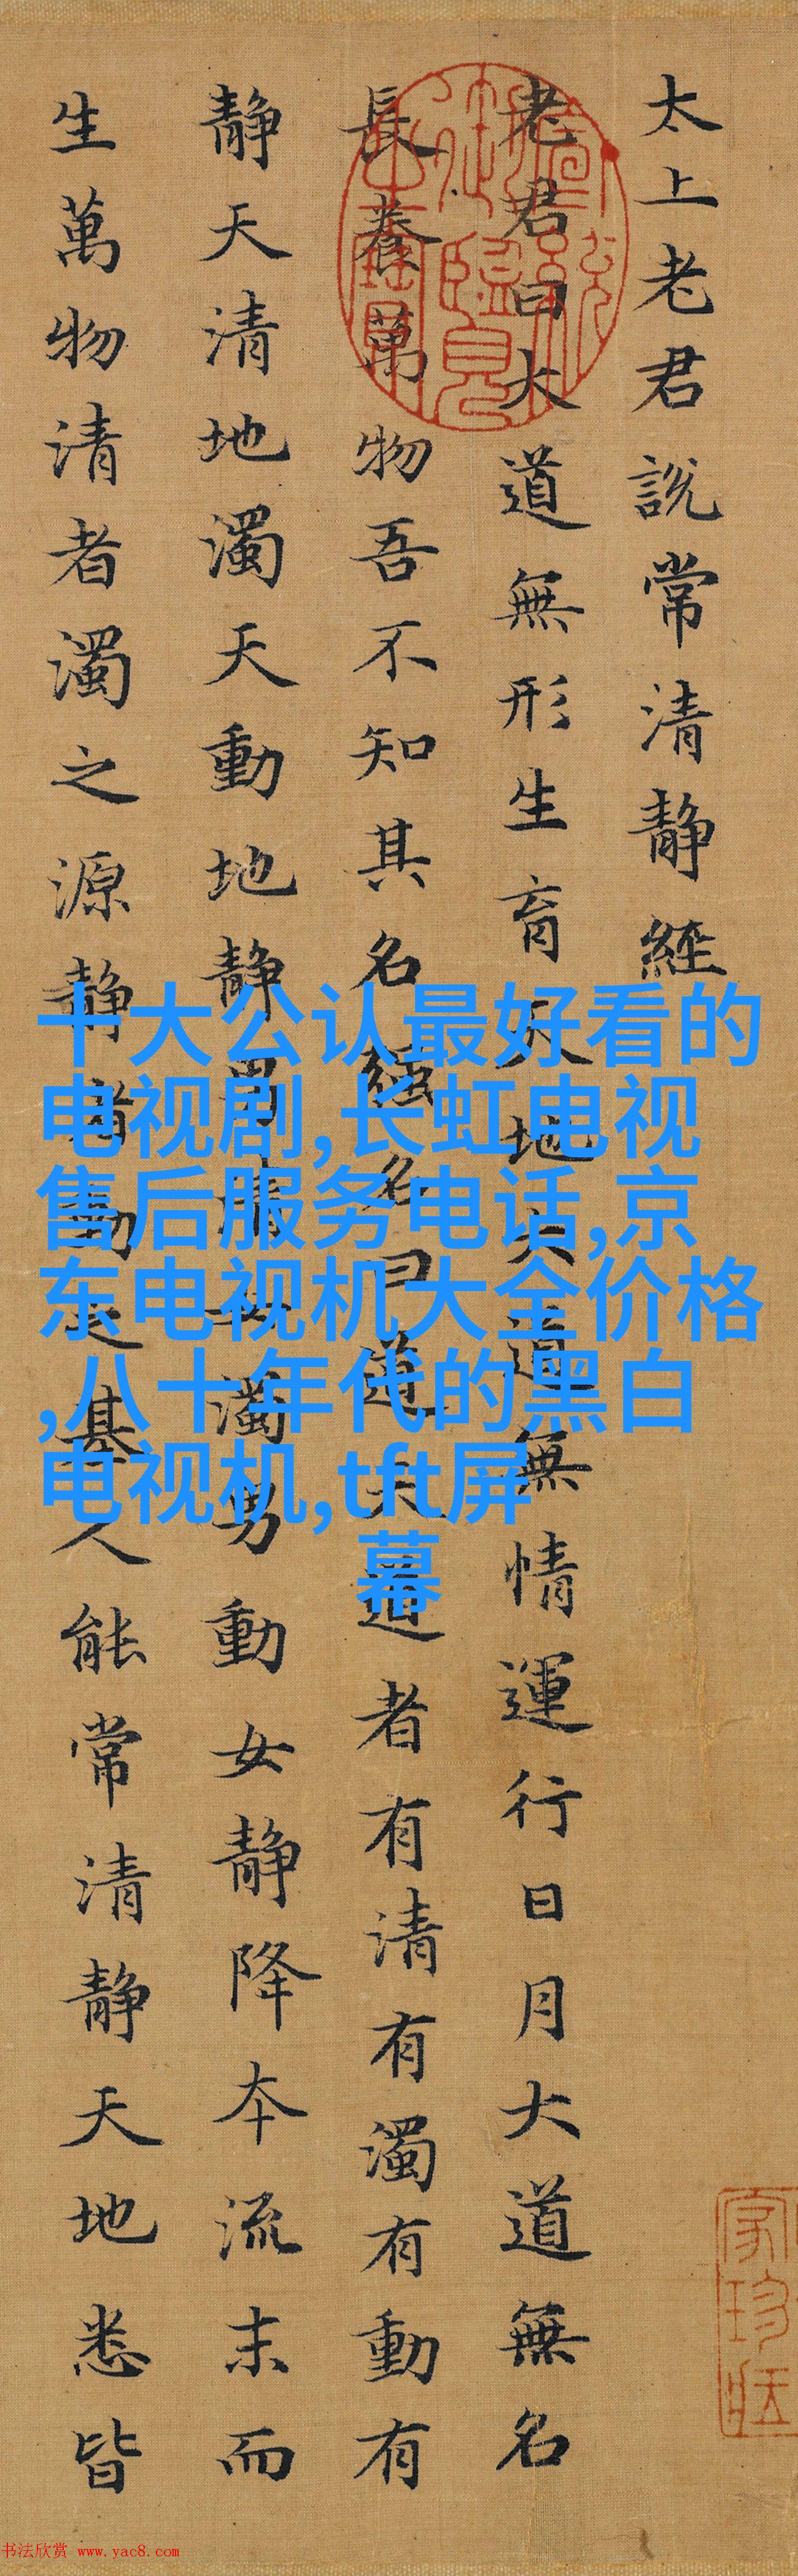 太上老君說常清靜經
老君曰大道無形生育天地大道無情運行日月大道無名
長養萬物吾不知其名強名曰道夫道者有清有濁有動有
靜天清地濁天動地靜男清女濁男動女靜降本流末而
生萬物清者濁之源靜者動之基人能常清靜天地悉皆
十大公认最好看的
电视剧,长虹电视
售后服务电话,京
东电视机大全价格
,八十年代的黑白
电视机,tft屏
幕
书法欣赏 www.yac8.com